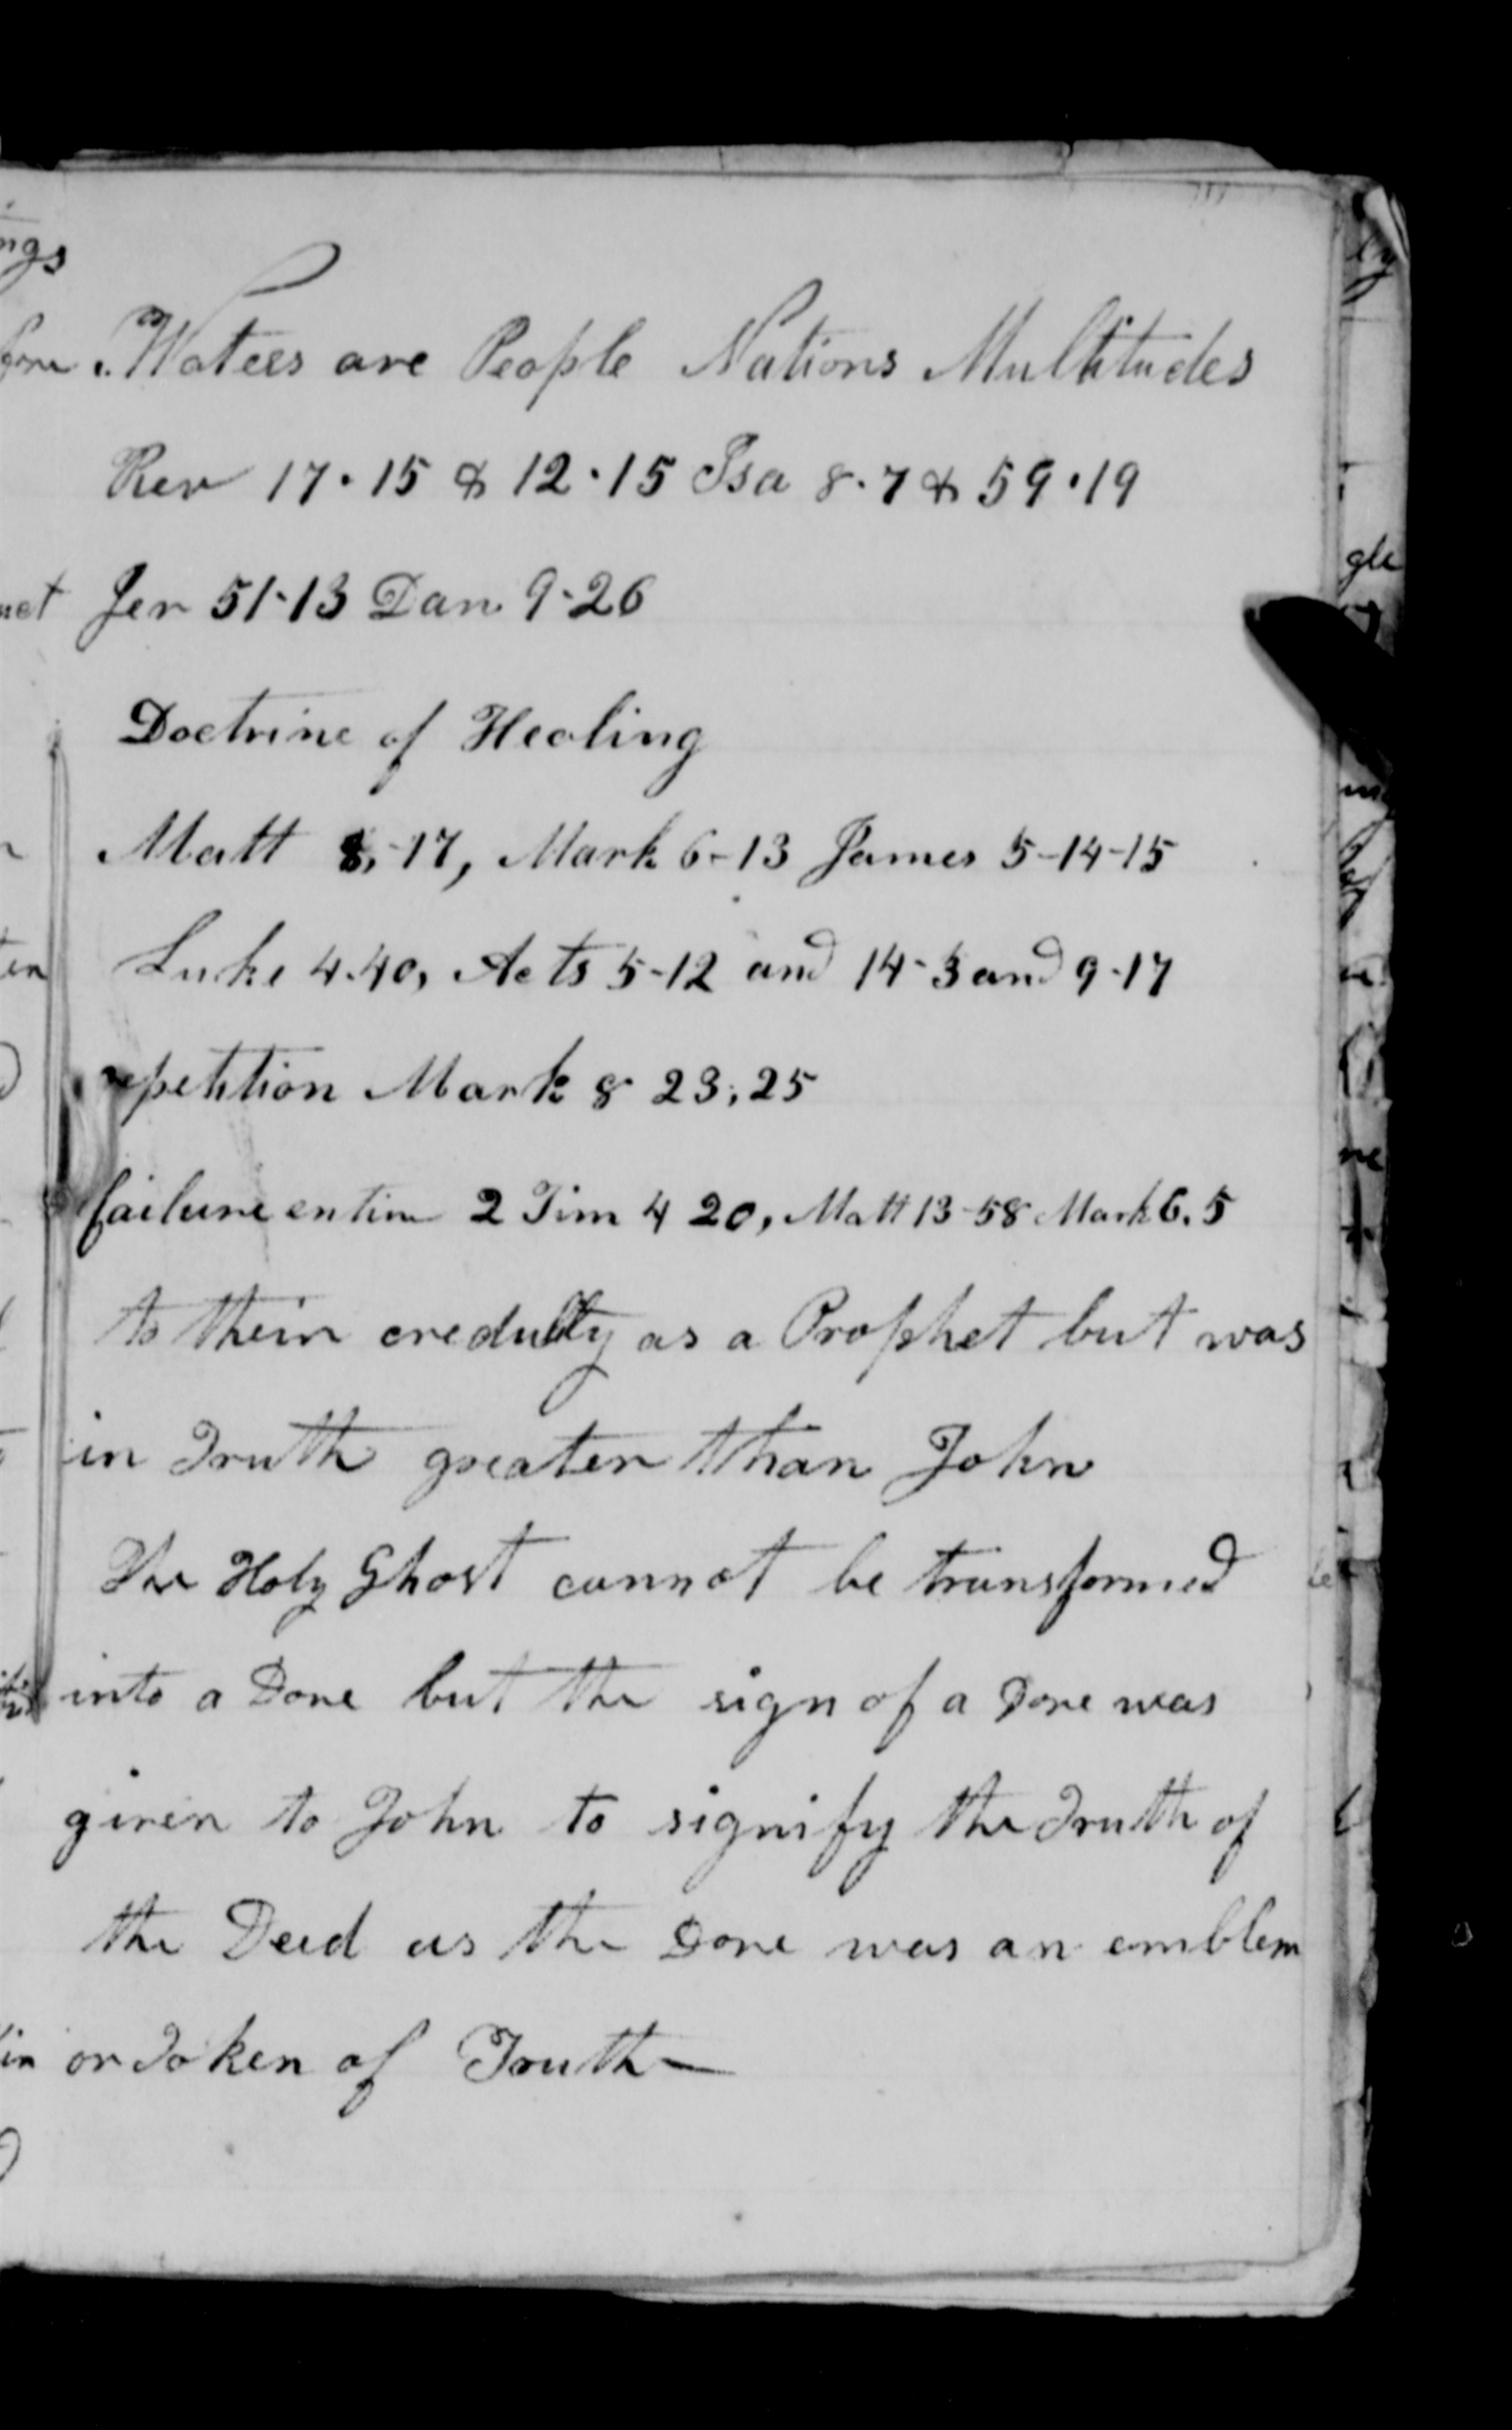 Waters are People Nations Multitudes
Rev 17.15 & 12.15 Isa 8.7 & 59.19
Jer 51-13 Dan 9-26
Doctrine of Healing
Matt 8,-17, Mark 6-13 James 5-14-15
Luke 4.40, Acts 5-12 and 14-3 and 9-17
repetition Mark 8 23,25
failure entire 2 Tim 4 20, Matt 13-58 Mark 6.5
to their credulity as a Prophet but was
in Truth greater than John
The Holy Ghost cannot be transformed
into a Dove but the sign of a Dove was
given to John to signify the Truth of
the Deed as the Dove was an emblem
or Token of Truth